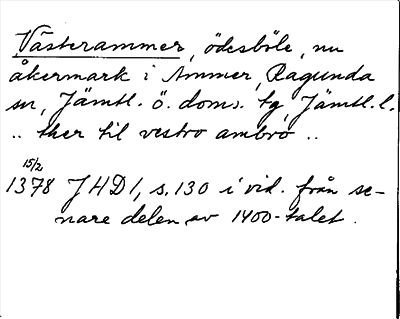 Västerammer, ödesböle, nu
åkermark i Ammer, Ragunda
sn, Jämtl. ö. doms. tg, Jämtl. l.
.. ther til vestro ambro ..
15/2
1378 JHD 1, s. 130 i vid. från se-
nare delen av 1400-talet.